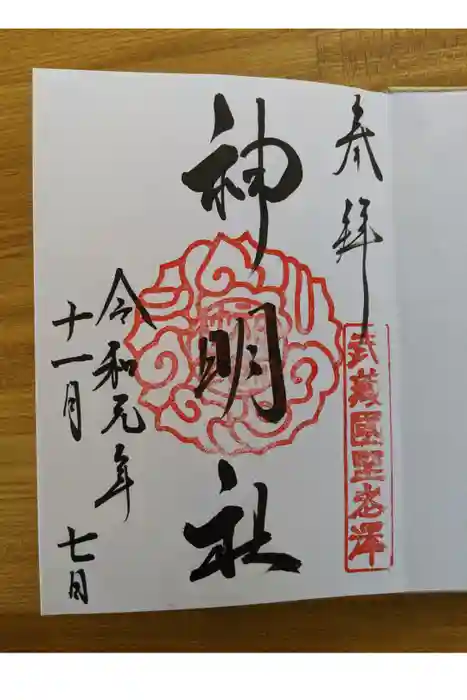 奉拝
武蔵國野老澤
神明社
令和元年
十一月七日